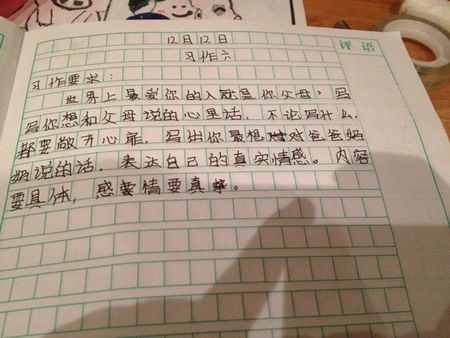 12月12日
评语
习作六
习作要求：
世界上最爱你的人就是你父母，写
写你想和父母说的心里话，不论写什么，
都要敞开心扉，写出你最想对对爸爸妈
妈说的话，表达自己的真实情感。内容
要具体，感情要真。